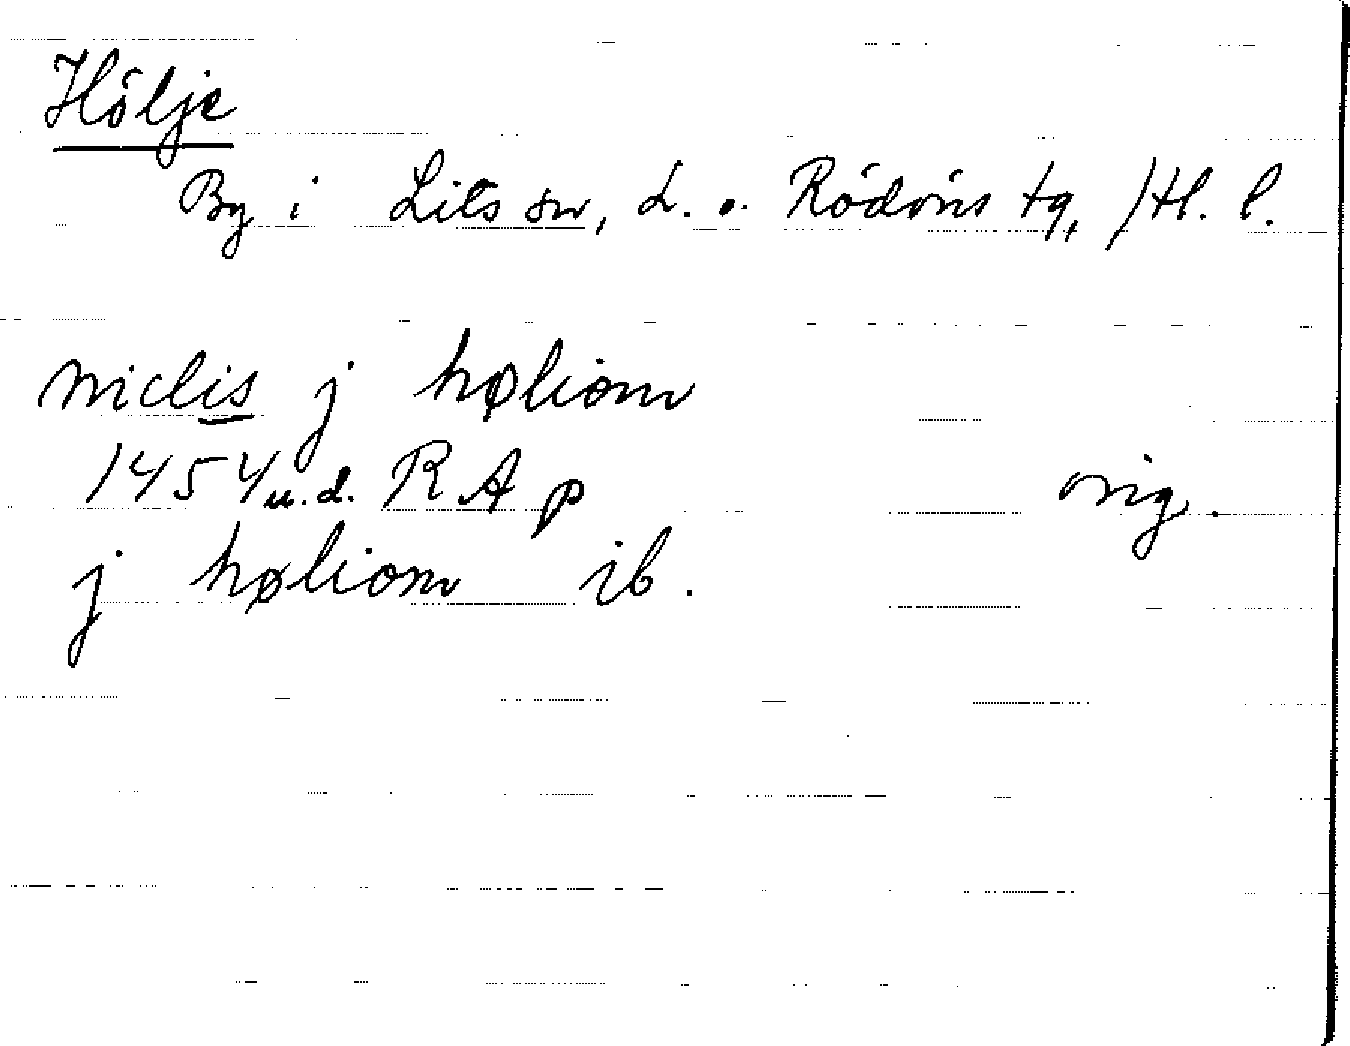 Hölje
By i Lits sn, L. o. Rödöns tg, Jtl. l.
niclis j høliom
1454 u.d. RA p orig.
j høliom ib.